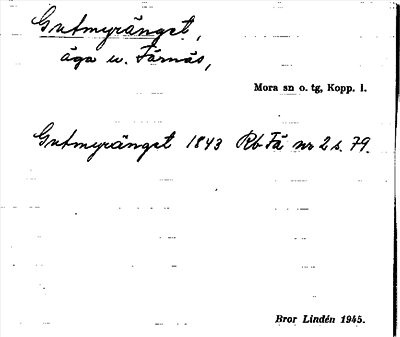 Gutmyränget,
äga u. Färnäs,
Mora sn o. tg, Kopp. l.
Gutmyränget 1843 Rb Fä nr 2 s. 79.
Bror Lindén 1945.